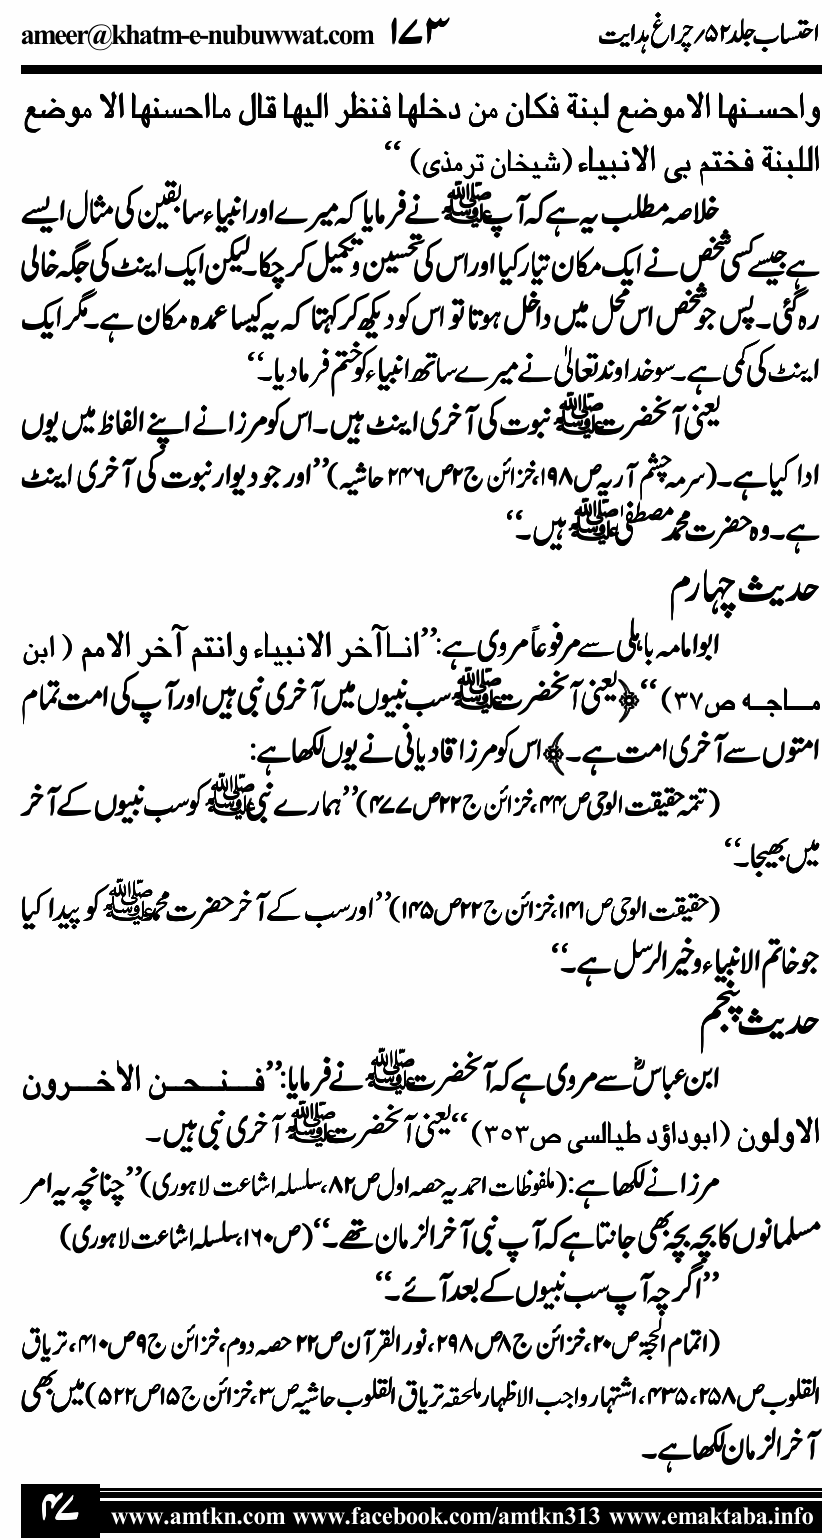 احتساب جلد ۵۲؍ چراغ ہدایت ۱۷۳ ameer@khatm-e-nubuwwat.com
واحسنها الاموضع لبنة فكان من دخلها فنظر اليها قال مااحسنها الا موضع
اللبنة فختم بی الانبیاء (شیخان ترمذی)‘‘
خلاصہ مطلب یہ ہے کہ آپﷺ نے فرمایا کہ میرے اور انبیاء سابقین کی مثال ایسے
ہے جیسے کسی شخص نے ایک مکان تیار کیا اور اس کی تحسین وتکمیل کر چکا۔ لیکن ایک اینٹ کی جگہ خالی
رہ گئی۔ پس جو شخص اس محل میں داخل ہوتا تو اس کو دیکھ کر کہتا کہ یہ کیسا عمدہ مکان ہے۔ مگر ایک
اینٹ کی کمی ہے۔ سو خداوند تعالیٰ نے میرے ساتھ انبیاء کو ختم فرما دیا۔‘‘
یعنی آنحضرتﷺ نبوت کی آخری اینٹ ہیں۔ اس کو مرزا نے اپنے الفاظ میں یوں
ادا کیا ہے۔ (سرمہ چشم آریہ ص۱۹۸، خزائن ج۲ ص۲۴۶ حاشیہ) ’’اور جو دیوار نبوت کی آخری اینٹ
ہے۔ وہ حضرت محمد مصطفیٰﷺ ہیں۔‘‘
حدیث چہارم
ابوامامہ باہلی سے مرفوعاً مروی ہے: ’’انا آخر الانبیاء وانتم آخر الامم (ابن
ماجہ ص۳۷)‘‘ ﴿یعنی آنحضرتﷺ سب نبیوں میں آخری نبی ہیں اور آپ کی امت تمام
امتوں سے آخری امت ہے۔﴾ اس کو مرزا قادیانی نے یوں لکھا ہے:
(تتمہ حقیقت الوحی ص۴۴، خزائن ج۲۲ ص۴۷۷) ’’ہمارے نبیﷺ کو سب نبیوں کے آخر
میں بھیجا۔‘‘
(حقیقت الوحی ص۱۴۱، خزائن ج۲۲ ص۱۴۵) ’’اور سب کے آخر حضرت محمدﷺ کو پیدا کیا
جو خاتم الانبیاء وخیر الرسل ہے۔‘‘
حدیث پنجم
ابن عباسؓ سے مروی ہے کہ آنحضرتﷺ نے فرمایا: ’’فنحن الاخرون
الاولون (ابوداؤد طیالسی ص۳۵۳)‘‘ یعنی آنحضرتﷺ آخری نبی ہیں۔
مرزا نے لکھا ہے: (ملفوظات احمدیہ حصہ اول ص۸۲، سلسلہ اشاعت لاہوری) ’’چنانچہ یہ امر
مسلمانوں کا بچہ بچہ بھی جانتا ہے کہ آپ نبی آخر الزمان تھے۔‘‘ (ص۱۶۰، سلسلہ اشاعت لاہوری)
’’اگرچہ آپ سب نبیوں کے بعد آئے۔‘‘
(اتمام الحجۃ ص۲۰، خزائن ج۸ ص۲۹۸، نور القرآن ص۲۲ حصہ دوم، خزائن ج۹ ص۴۱۰، تریاق
القلوب ص۲۵۸، ۴۳۵، اشتہار واجب الاظہار ملحقہ تریاق القلوب حاشیہ ص۳، خزائن ج۱۵ ص۵۲۲) میں بھی
آخر الزمان لکھا ہے۔
۴۷ www.amtkn.com www.facebook.com/amtkn313 www.emaktaba.info